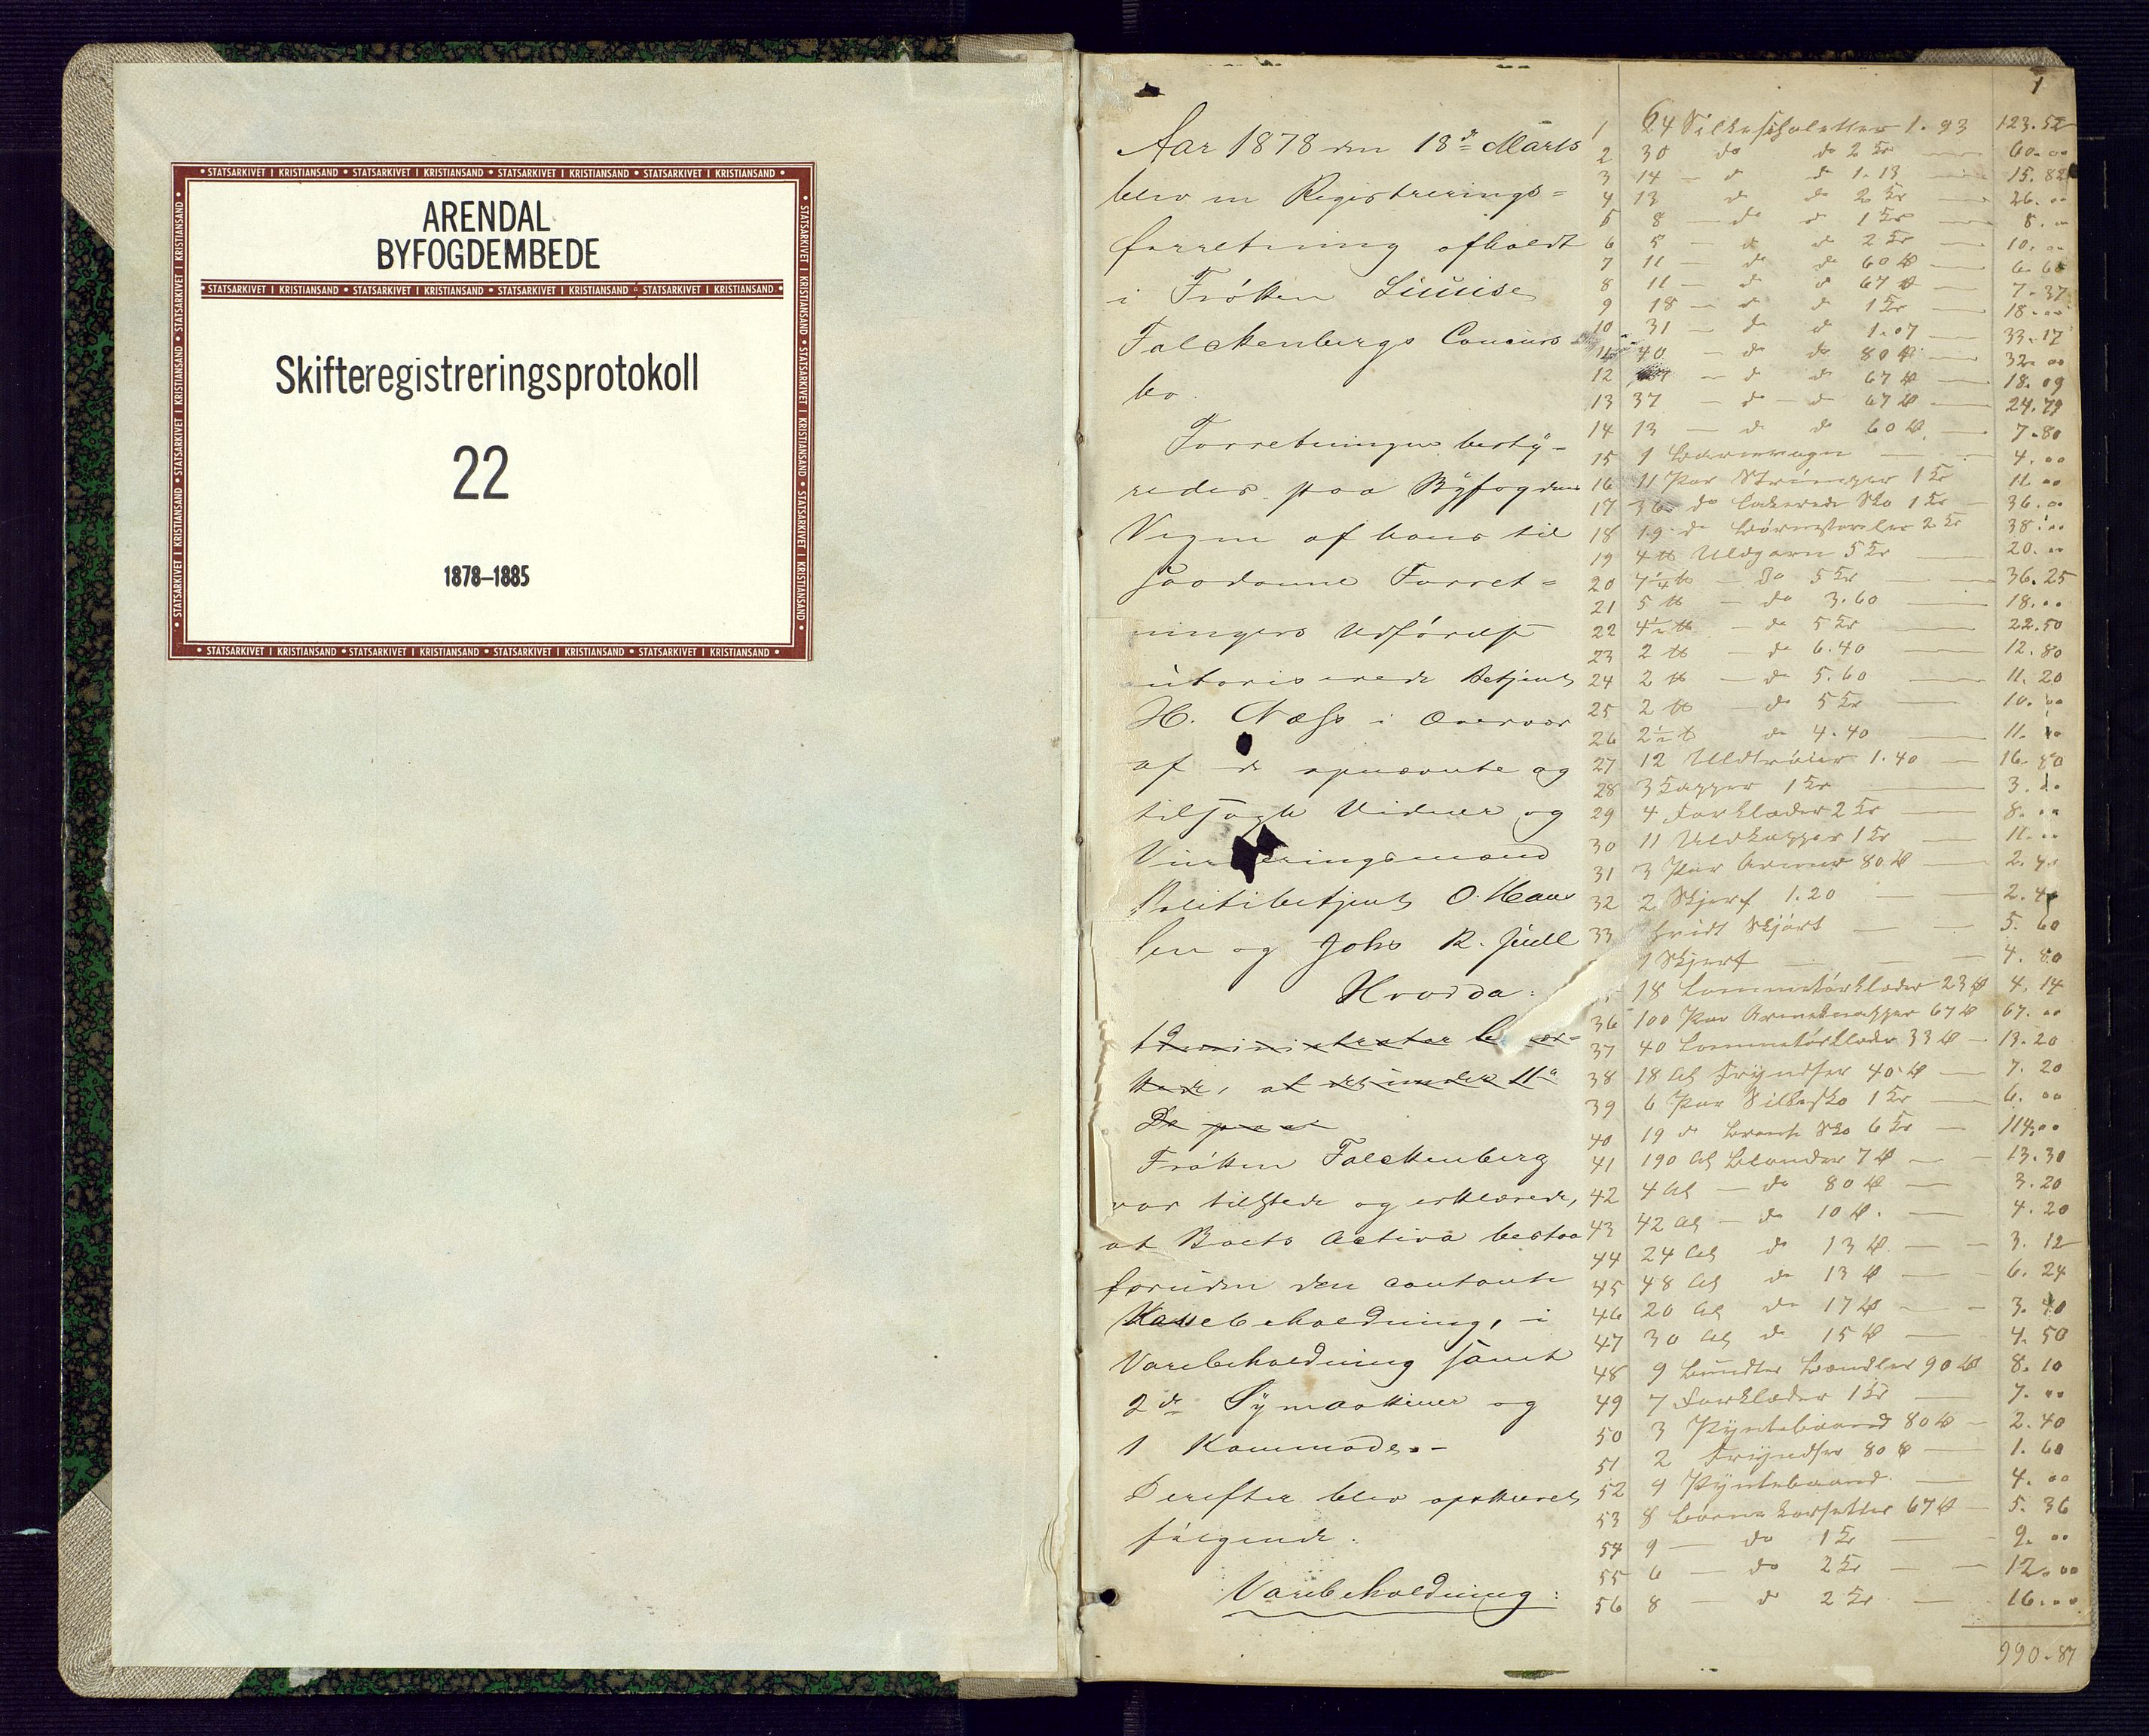 ARENDAL
BYFOGDEMBEDE
Skifteregistreringsprotokoll
22
1878–1885
STATSARKIVET I KRISTIANSAND
1
Aar 1878 den 18de Marts
blev en Registrerings=
forretning afholdt
i Frøken Louise
Falckenbergs Concurs
bo
Forretningen besty-
redes paa Byfogdens
Vegne af hans til
saadanne Forret=
ningers Udførelse
autoriserede Betjent
H. Næss i Overvær
af de opnævnte og
tilsagte Vidner og
Vurderingsmænd
Politibetjent O. Han
sen og Johs R. Juell
Hvorda:
Frøken Falckenberg
var tilstede og erklærede,
at Boets Activa bestaa
foruden den contante
Kassebeholdning, i
Varebeholdning samt
2de Symaskiner og
1 Kommode.-
Derefter blev opskrevet
følgende:
Varebeholdning:
1 64 1.93 123.52
2 30 do do 2 Kr 60..
3 14 - d d 1.13 15.82
4 13 d do 2 Kr 26...
5 8 - do d 1 Kr 8...
6 5 - d d 2 Kr 10...
7 11 - do do 60 Ø 6.60
8 11 - do d 67 Ø 7.37
9 18 - d d 1 Kr 18...
10 31 - do d 1.07 33.17
11 40 - d do 80 Ø 32...
12 - d do 67 Ø 18.09
13 37 - d - d 67 Ø 24.79
14 13 - d do 60 Ø 7.80
15 1 Barnevogn 4...
16 11 Par 1 Kr 11...
17 36 do lakerede Sko 1 Kr 36...
18 19 d Børnestøvler 2 Kr 38...
19 4 ℔ Uldgarn 5 Kr 20...
20 7¼ ℔ - do 5 Kr 36.25
21 5 ℔ - do 3.60 18...
22 4½ ℔ - do 5 Kr 22.50
23 2 ℔ - do 6.40 12.80
24 2 ℔ - do 5.60 11.20
25 2 ℔ - do 5 Kr 10...
26 2½ ℔ do 4.40 11...
27 12 Uldtrøier 1.40 16.80
28 3 Kapper 1 Kr 3...
29 4 Forklæder 2 Kr 8...
30 11 Uldkapper 1 Kr 11...
31 3 Par Ærmer 80 Ø 2.40
32 2 Skjerf 1.20 2.40
33 hvidt Skjørt 5.60
1 Skjerf 4.80
18 Lommetørklæder 23 Ø 4.14
36 100 Par Armeknapper 67 Ø 67...
37 40 Lommetørklæder 33 Ø 13.20
38 18 Al Fryndser 40 Ø 7.20
39 6 Par Silkesko 1 Kr 6...
40 19 d Sko 6 Kr 114...
41 190 Al Blonder 7 Ø 13.30
42 4 Al - do 80 Ø 3.20
43 42 Al - do 10 Ø 4.20
44 24 Al do 13 Ø 3.12
45 48 Al do 13 Ø 6.24
46 20 Al do 17 Ø 3.40
47 30 Al do 15 Ø 4.50
48 9 Bundter Bændler 90 Ø 8.10
49 7 Forklæder 1 Kr 7...
50 3 Pyntebaand 80 Ø 2.40
51 2 Fryndser 80 Ø 1.60
52 9 Pyntebaand 4...
53 8 Børnekorsetter 67 Ø 5.36
54 9 - do 1 Kr 9...
55 6 - do 2 Kr 12...
56 8 - d 2 Kr 16...
990.87